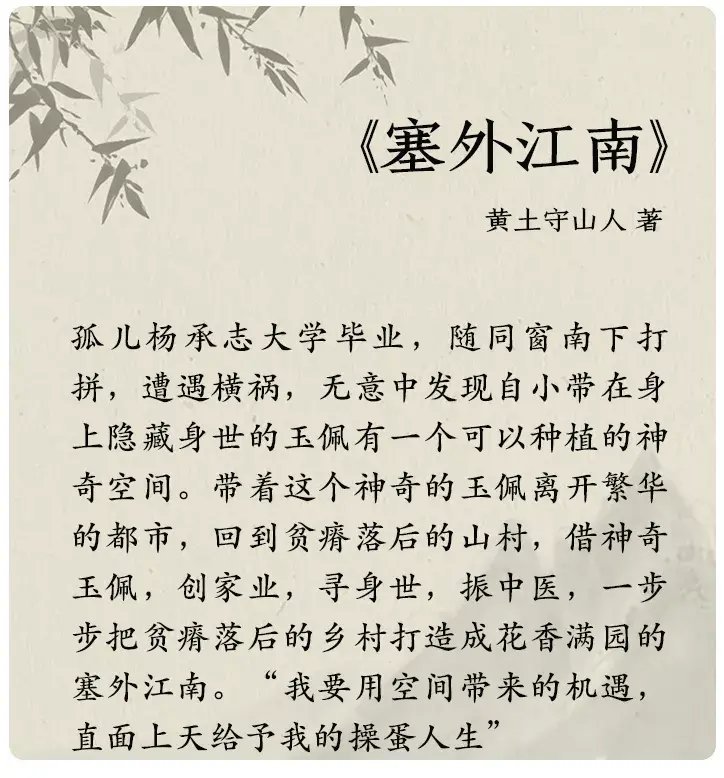 《塞外江南》
黄土守山人 著
孤儿杨承志大学毕业，随同窗南下打
拼，遭遇横祸，无意中发现自小带在身
上隐藏身世的玉佩有一个可以种植的神
奇空间。带着这个神奇的玉佩离开繁华
的都市，回到贫瘠落后的山村，借神奇
玉佩，创家业，寻身世，振中医，一步
步把贫瘠落后的乡村打造成花香满园的
塞外江南。“我要用空间带来的机遇，
直面上天给予我的操蛋人生”